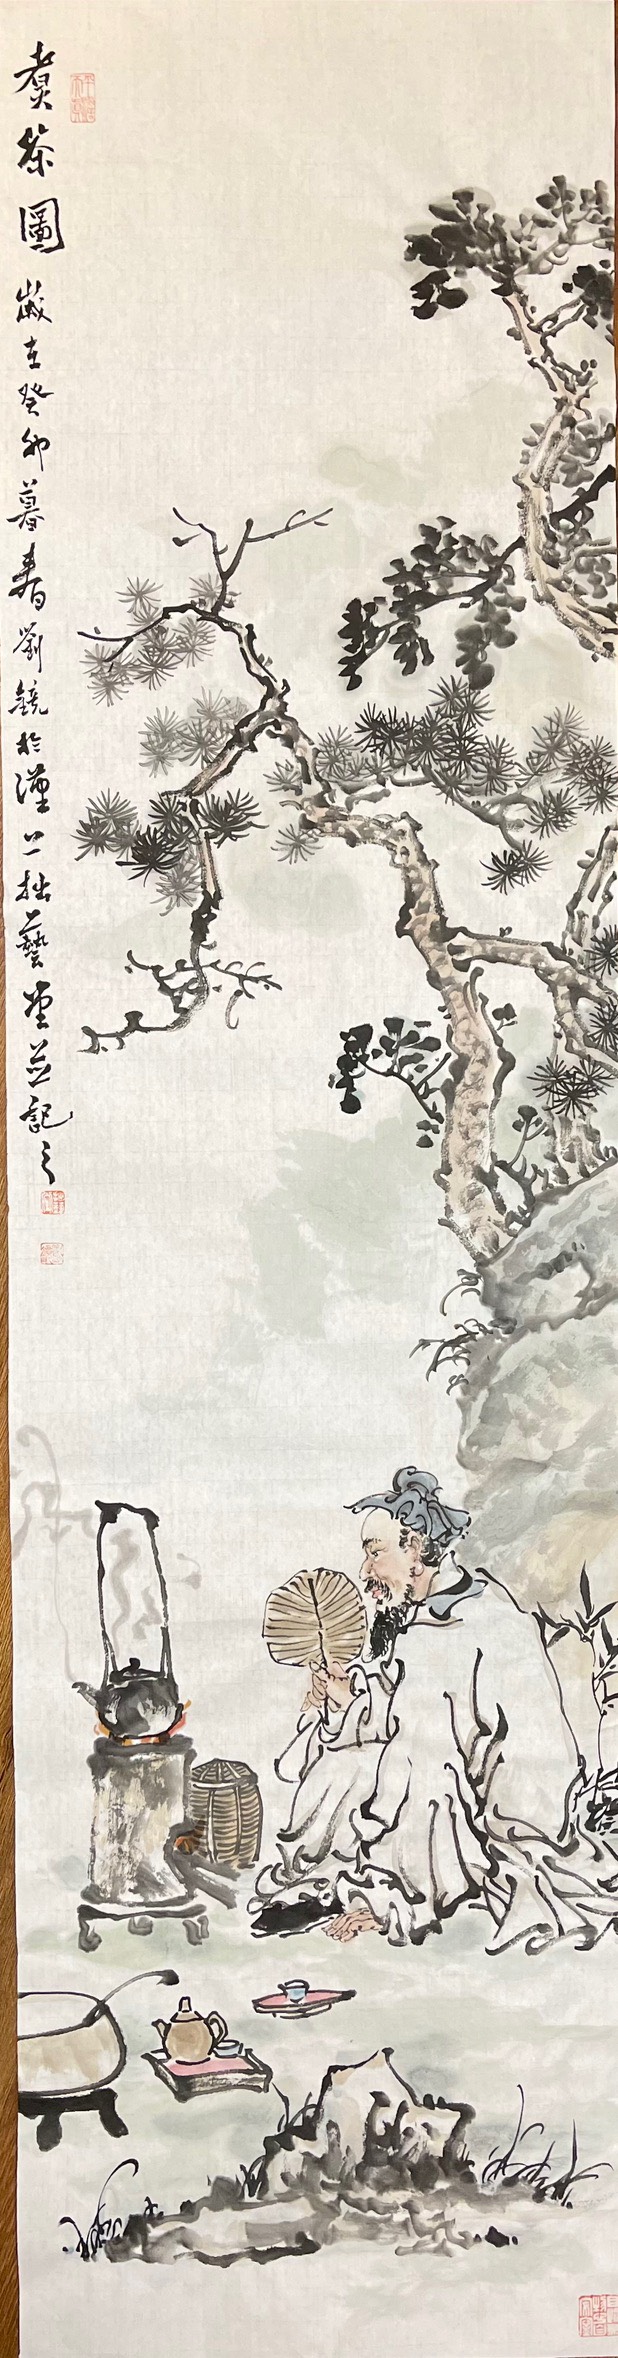 煮茶圖
歲在癸卯暮春劉鏡於漢上拙藝堂並記之